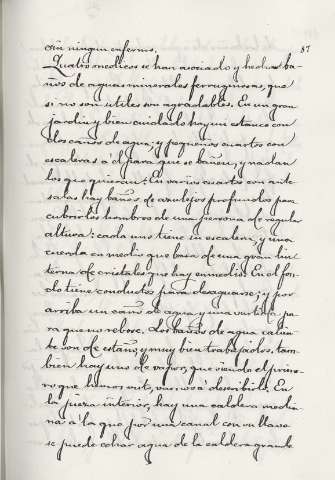 con ningun enfermo.
57
Quatro medicos se han asociado y hecho ba-
ños de aguas minerales ferruginosas, que
si no son utiles son agradables. En un gran
jardin y bien cuidado hay un estanco con
dos caños de agua, y pequeños cuartos con
escaleras á él para que se bañen, y nadan
los que quieran. En varios cuartos con ante-
salas hay baños de azulejos profundos para
cubrir los hombros de una persona de regular
altura: cada uno tiene su escalera, y una
cuerda en medio que baja de una gran lin-
terna de cristales que hay en medio. En el fon-
do tiene conducto para desaguarse, y por
arriba un caño de agua y una vertida pa-
ra que no rebose. Los baños de agua calien-
te son de estaño, y muy bien trabajados, tam-
bien hay uno de vapor, que siendo el prime-
ro que hemos visto, voy á describirlo. En
la pieza interior, hay una caldera media-
na á la que por una canal con su llave
se puede echar agua de la caldera grande